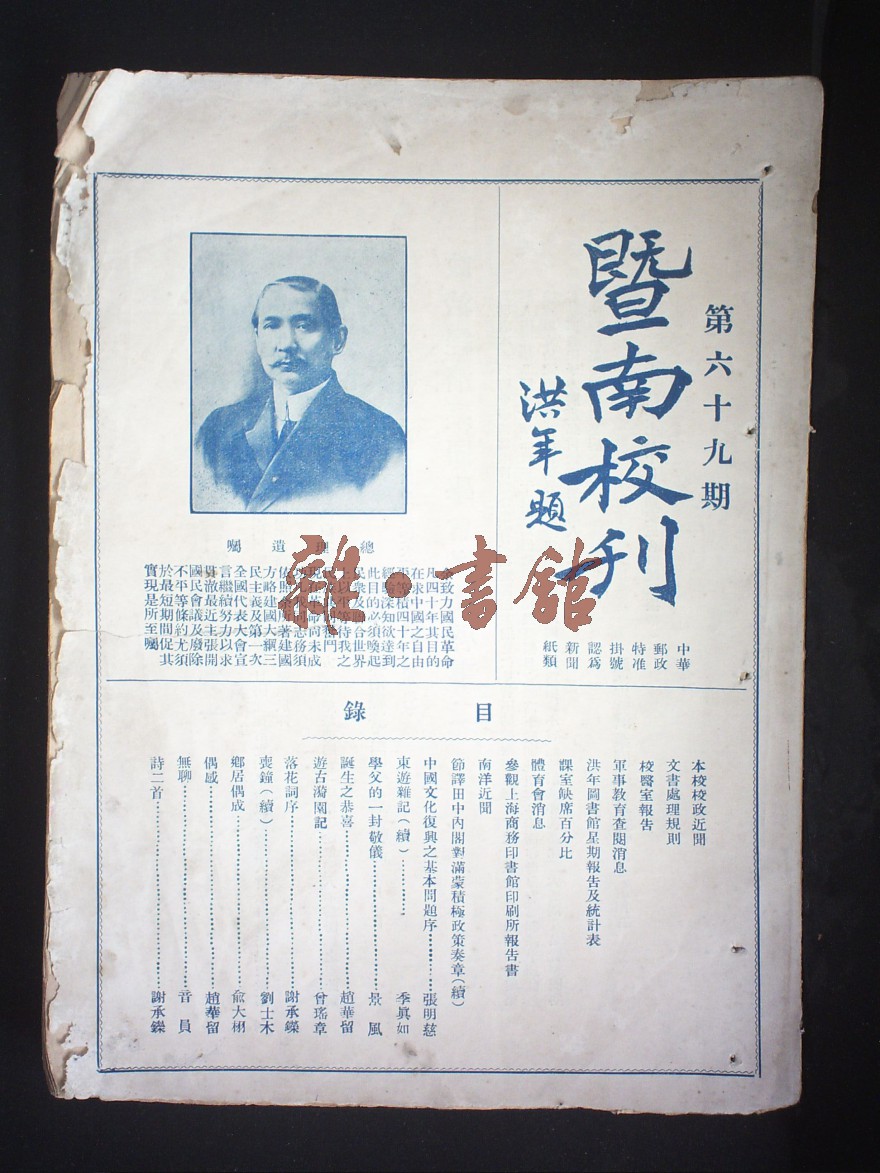 第六十九期
暨南校刊
洪年題
中華
郵政
特准
掛號
認爲
新聞
紙類
總理遺囑
余致力國民革命
凡四十年其目的
在求中國之自由
平等積四十年之
經驗深知欲達到
此目的必須喚起
民衆及聯合世界
上以平等待我之
民族共同奮鬥
現在革命尚未成
功凡我同志務須
依照余所著建國
方略建國大綱三
民主義及第一次
全國代表大會宣
言繼續努力以求
貫徹最近主張開
國民會議及廢除
不平等條約尤須
於最短期間促其
實現是所至囑
雜·書館
目錄
本校校政近聞
文書處理規則
校醫室報告
軍事教育查閱消息
洪年圖書館星期報告及統計表
課室缺席百分比
體育會消息
參觀上海商務印書館印刷所報告書
南洋近聞
節譯田中內閣對滿蒙積極政策奏章(續)
中國文化復興之基本問題序…………張明慈
東遊雜記(續)…………季眞如
學父的一封敬儀…………景風
誕生之恭喜…………趙華留
遊古漪園記…………曾瑤章
落花詞序…………謝承鑅
喪鐘(續)…………劉士木
鄉居偶成…………俞大栩
偶感…………趙華留
無聊…………音員
詩二首…………謝承鑅